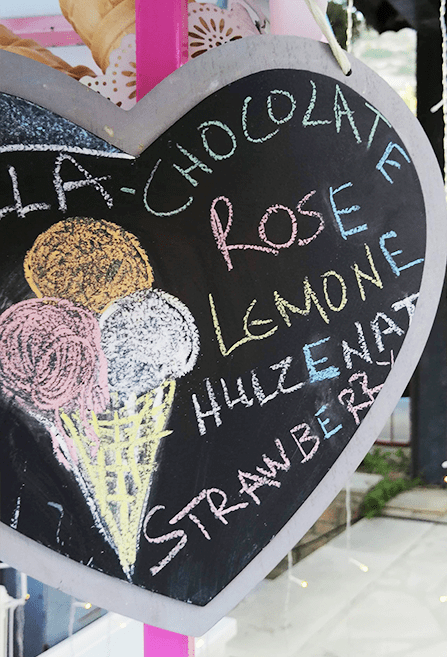 LLA-CHOCOLATE
ROSE
LEMONE
HULZENAT
STRAWBERRY